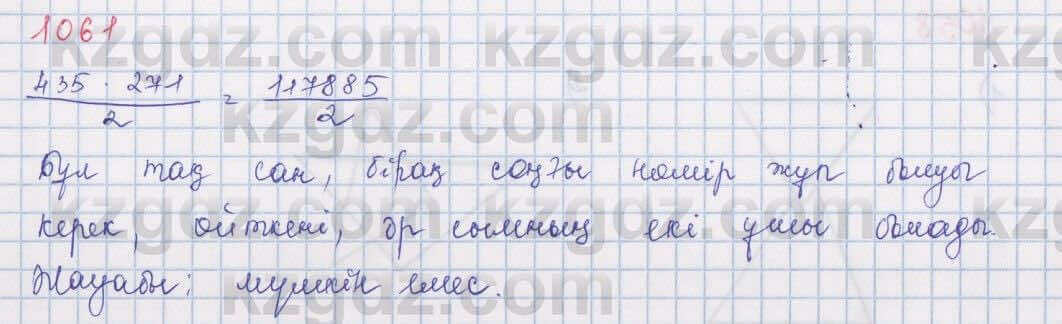 1061
435 · 271 / 2 = 117885 / 2
Бұл тақ сан, бірақ соңғы нөмір жұп болуы
керек, өйткені, әр сымның екі ұшы болады.
Жауабы: мүмкін емес.
kzgdz.com kzgdz.com
kzgdz.com
kzgdz.com kzgdz.com
kzgdz.com